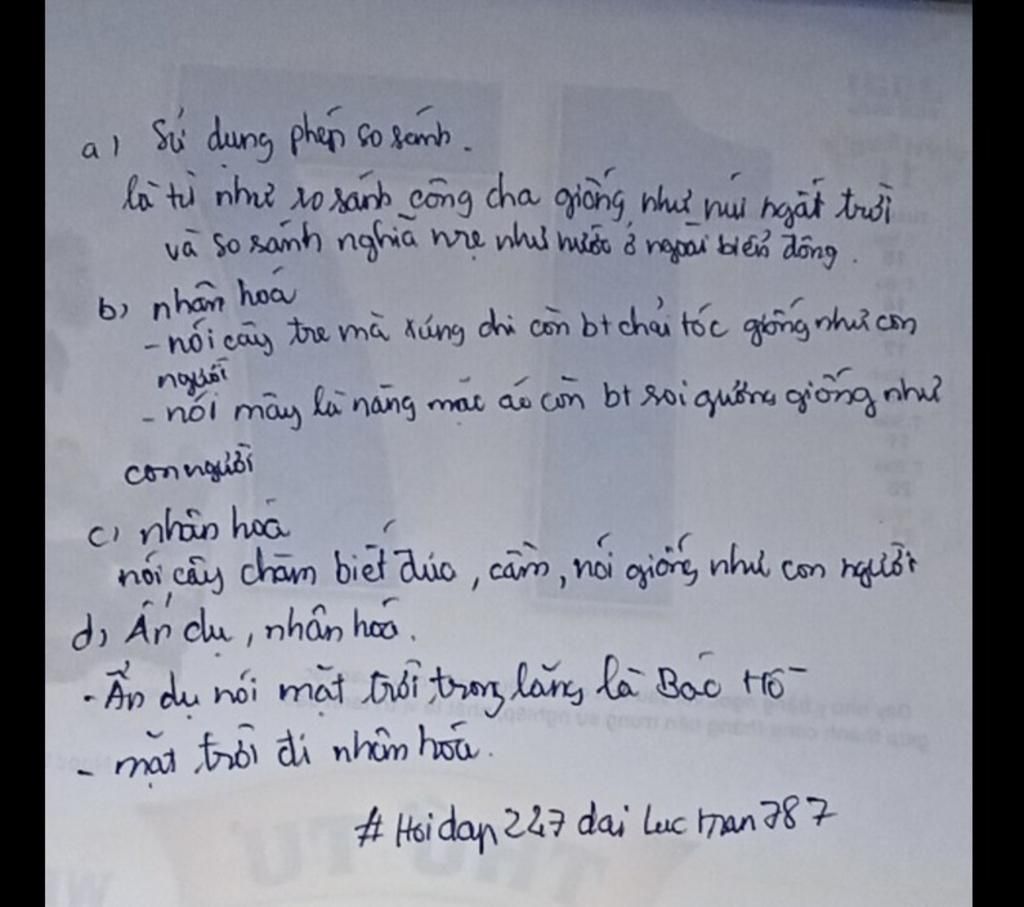 a) Sử dụng phép so sánh.
là từ như so sánh công cha giống như núi ngất trời
và so sánh nghĩa mẹ như nước ở ngoài biển đông.
b) nhân hoá
- nói cây tre mà xưng chị còn bt chải tóc giống như con
người
- nói mây là nàng mặc áo còn bt soi gương giống như
con người
c) nhân hoá
nói cây chăm biết đúc, cầm, nói giống như con người
d) Ẩn dụ, nhân hoá.
- Ẩn dụ nói mặt trời trong lăng là Bác Hồ
- mặt trời đi nhân hoá.
# Hoidap247 dai luc tran 787